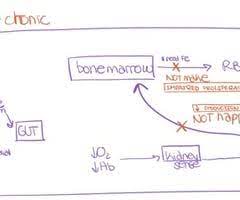 chonic
bone marrow
need Fe
RB
NOT make
IMPAIRED PROLIFERA
NOT happ
GUT
↓O₂
↓Hb
kidney
sense